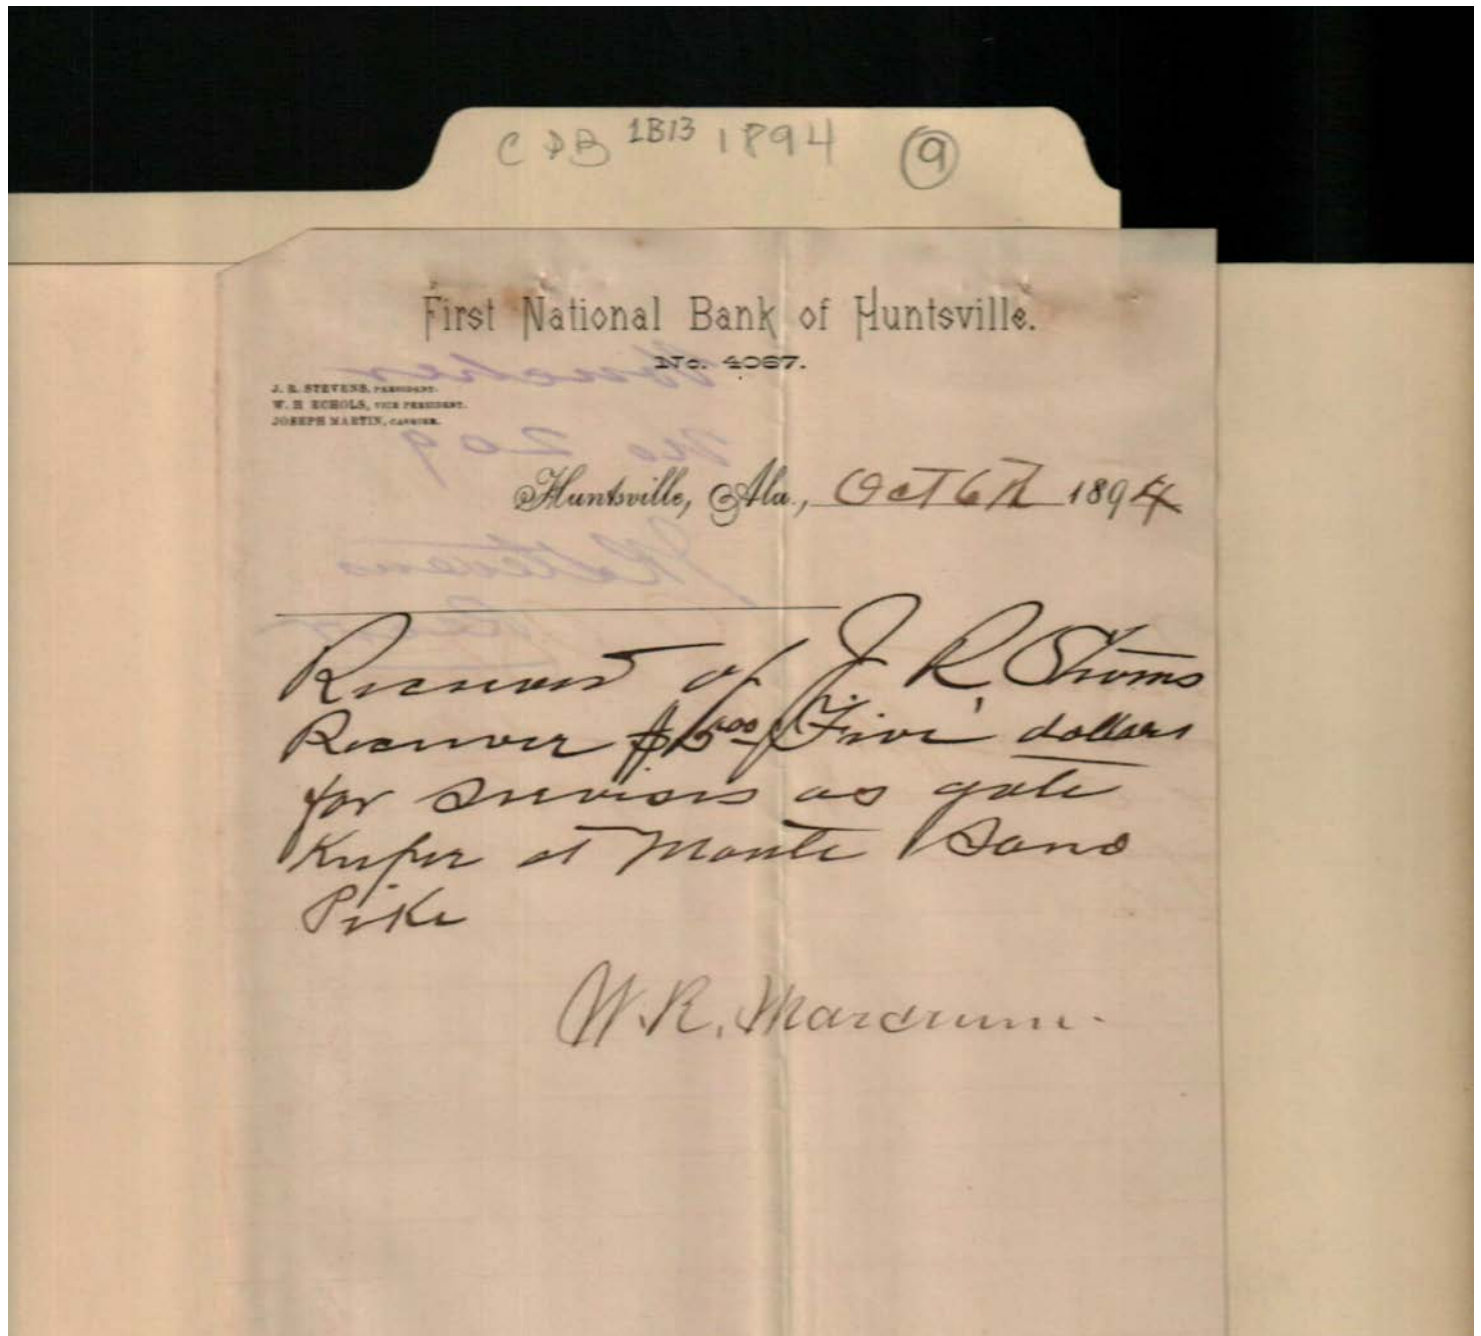 CDB 1B13 1894 9
First National Bank of Huntsville.
No. 4067.
J. R. STEVENS, PRESIDENT.
W. H ECHOLS, VICE PRESIDENT.
JOSEPH MARTIN, CASHIER.
Voucher
No 209
Huntsville, Ala., Oct 6th 1894
J R Stevens
Received of J R Stevens
Receiver $5.00 Five dollars
for services as gate
Keeper at Monte Sano
Pike
W. R.